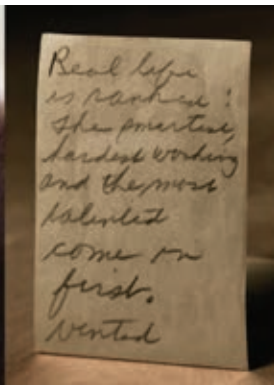 Real life
is ranked!
the smartest,
hardest working
and the most
talented
come in
first.